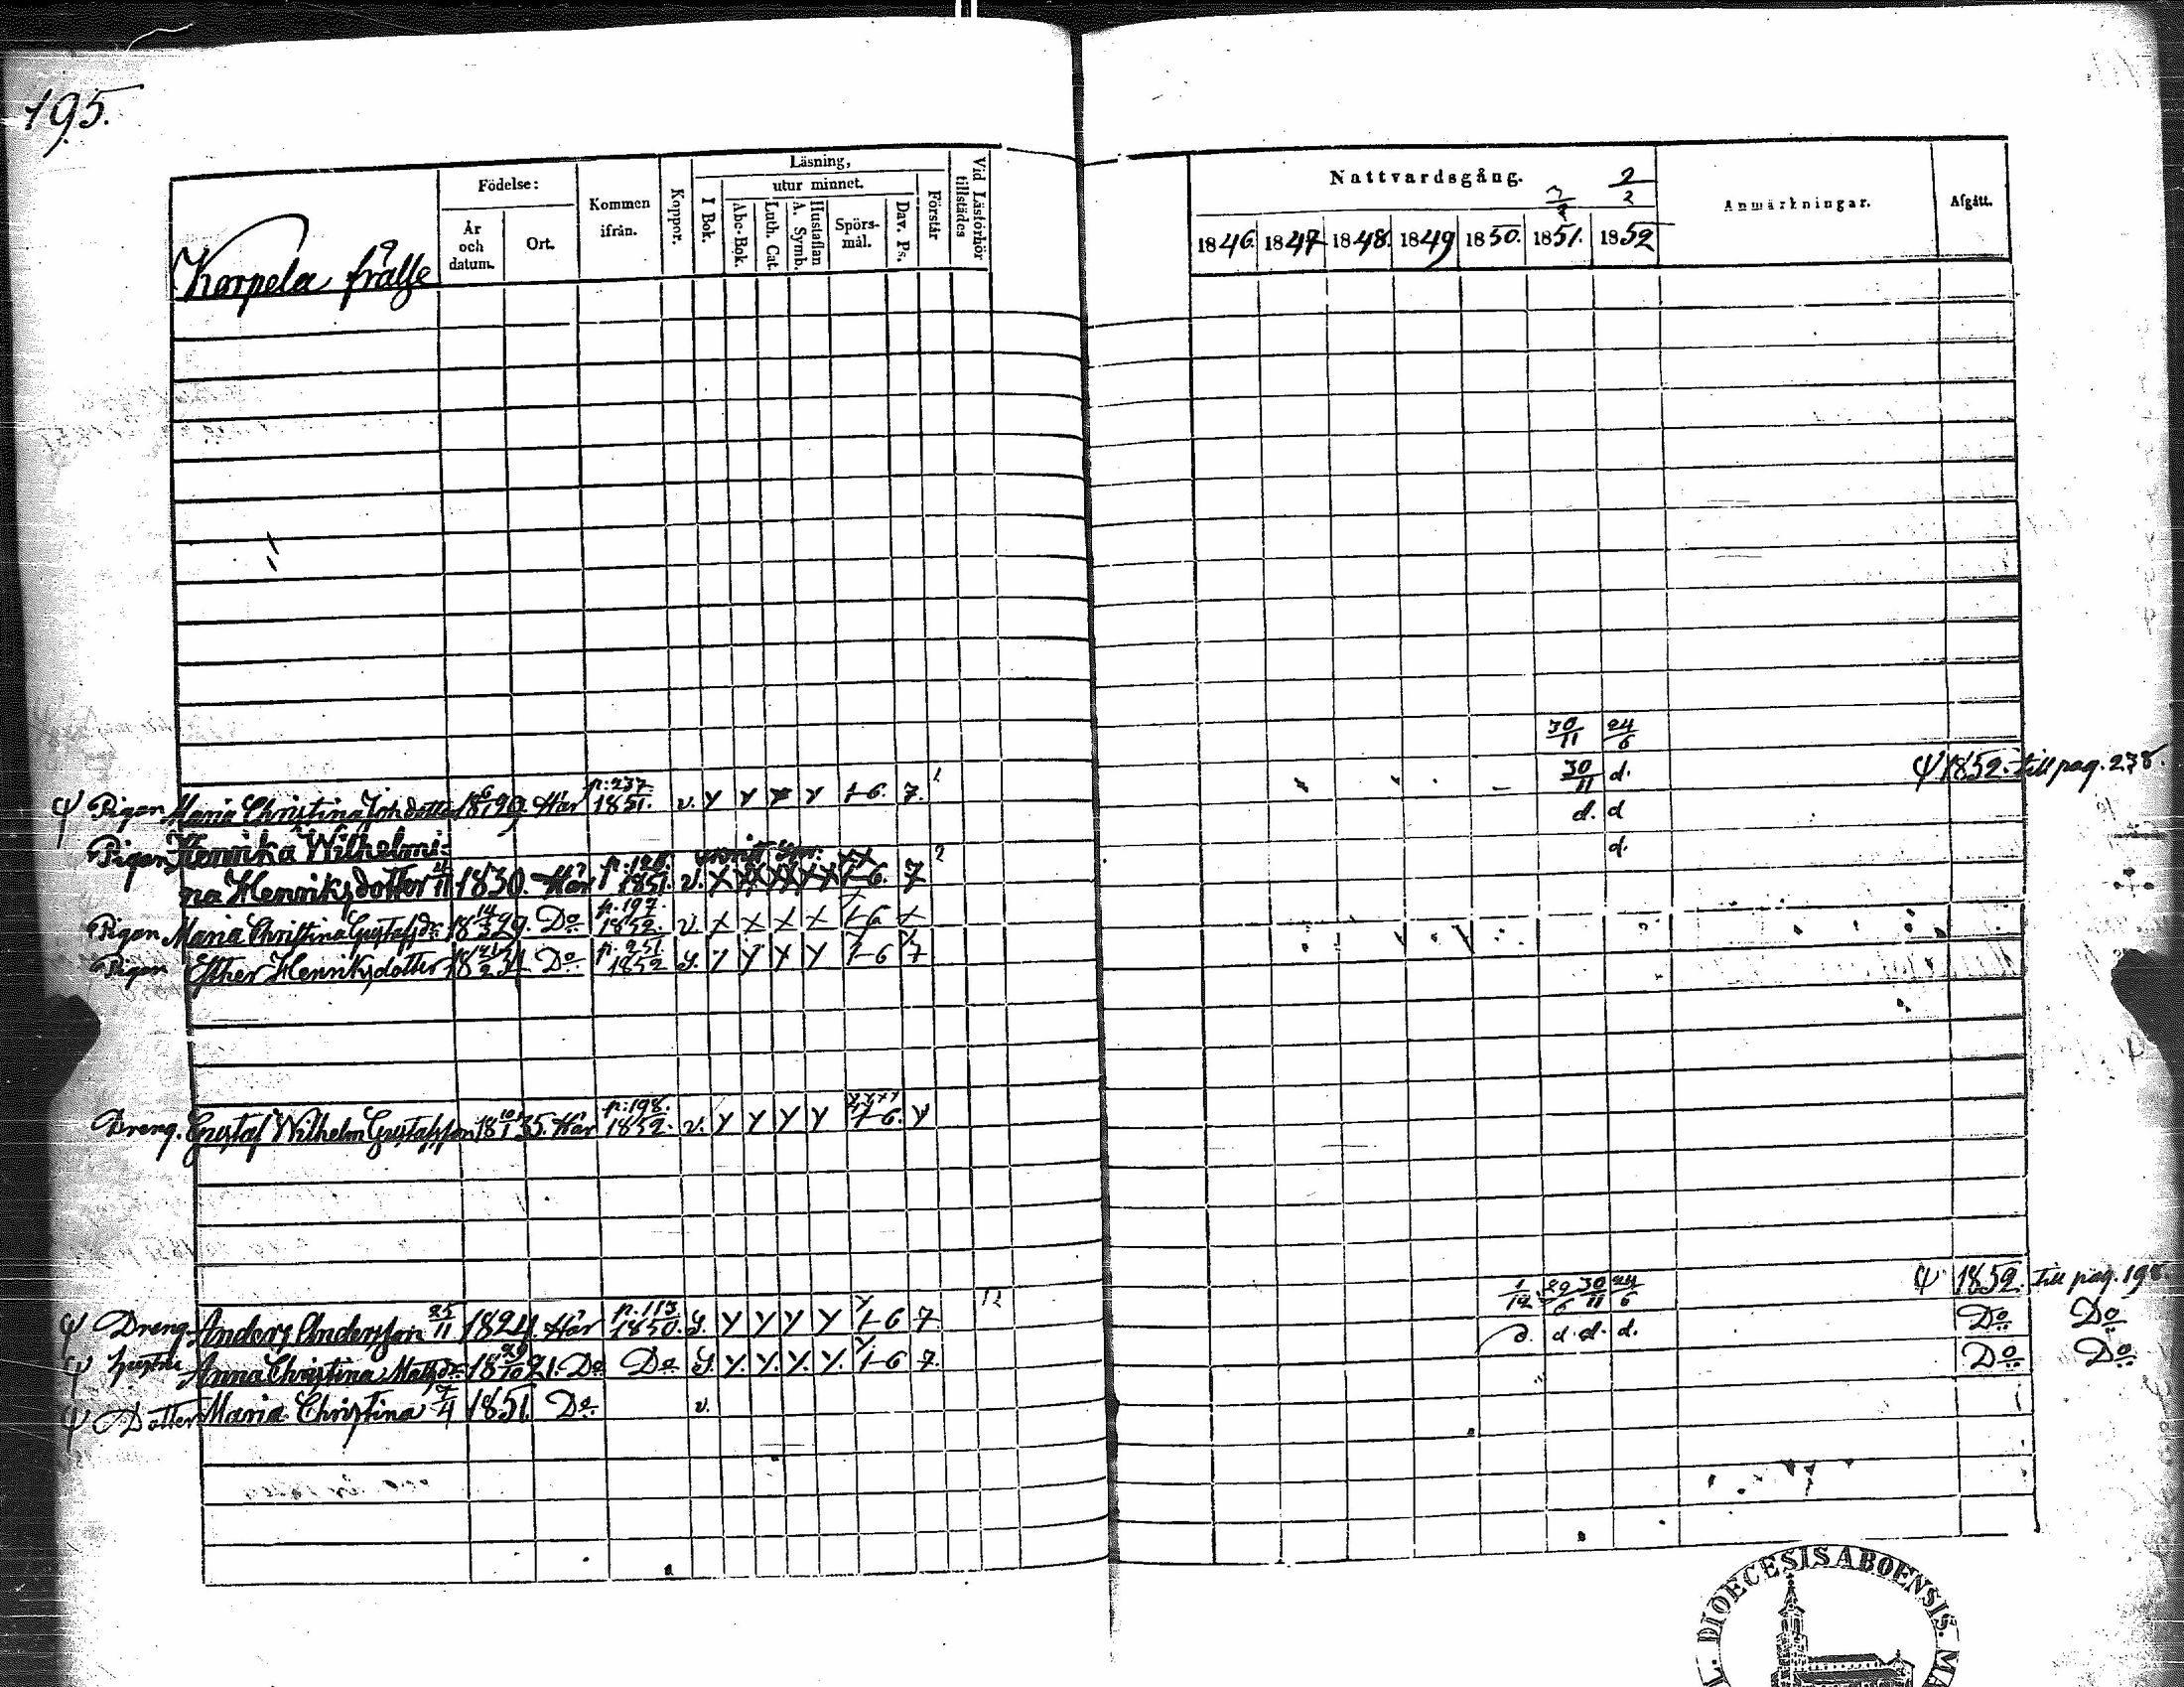 195.
Korpela frälse
Födelse:
År och datum.
Ort.
Kommen ifrån.
Koppor.
Läsning,
I Bok.
utur minnet.
Abc-Bok.
Luth. Cat.
A. Symb.
Hustaflan
Spörs-mål.
Dav. Ps.
Förstår
Vid Läsförhör tillstädes
Nattvardsgång. 2/2
1846. 1847 1848. 1849 1850. 1851. 1852
Anmärkningar.
Afgått.
30/11 24/6
30/11 d. ψ 1852. till pag. 238.
ψ Pigan Maria Christina Joh.dotter 18 6/1 29. Här p. 237. 1851. v. y y y y 1-6. 7.
d. d
Pigan Henrika Wilhelmi-
d.
na Henriksdotter 1830. Här 1851. v. x x x x x 1-6. 7
Pigan Maria Christina Gustafsdr 18 14/2 29. Do p. 197. 1852. v. x x x x 1-6 x
Pigan Esther Henriksdotter 18 21/2 34 Do p. 251. 1852 y. y y y y 1-6 7
Dreng. Gustaf Wilhelm Gustafsson 18 10/1 35. Här p: 198. 1852. v. y y y y 1-6. y
1/12 30/11 24/6 ψ 1852. till pag. 198
ψ Dreng. Anders Andersson 25/11 1824. Här p. 113 1850. y. y y y y 1-6 7
d. d. d. d. Do Do
ψ hustru Anna Christina Matsdr 18 29/10 21. Do Do y y. y. y. y. 1-6 7.
Do Do
ψ Dotter Maria Christina 7/4 1851. Do v.
DIOECESIS ABOENSIS.